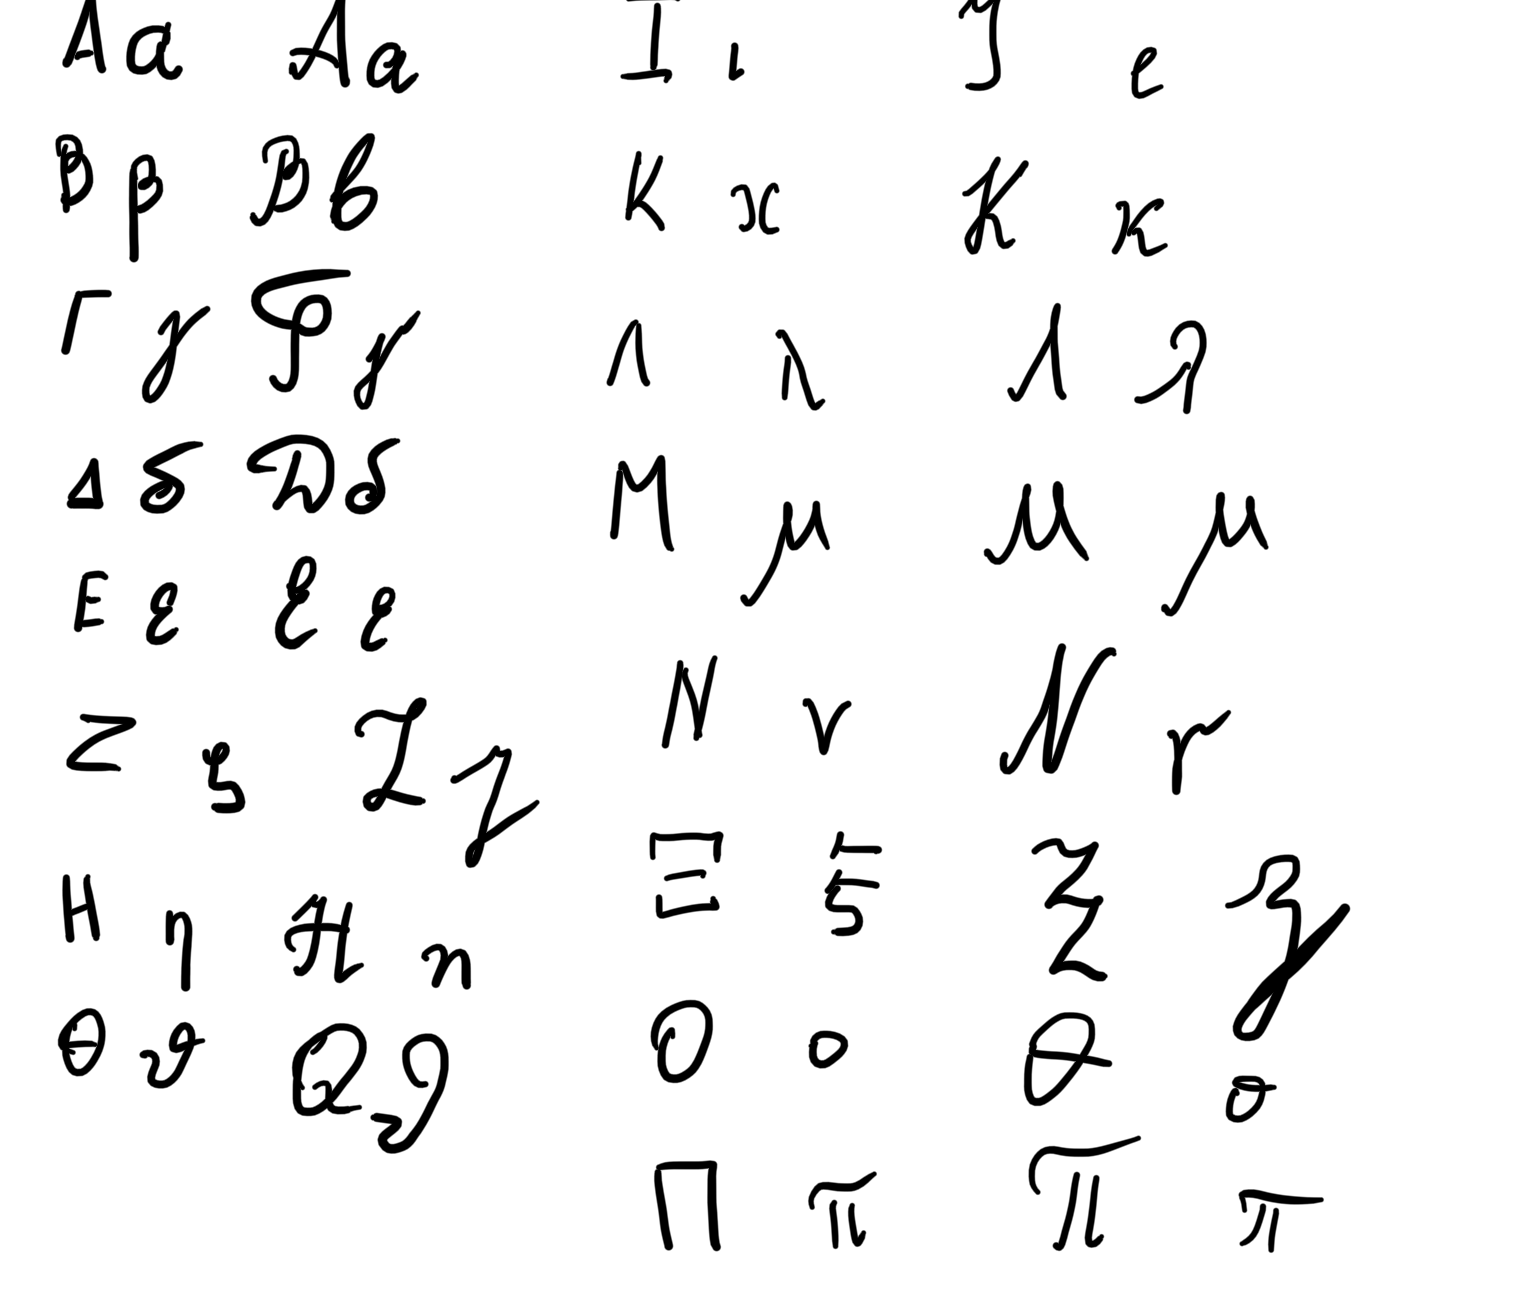 Α α Α α
Β β Β β
Γ γ Γ γ
Δ δ Δ δ
Ε ε Ε ε
Ζ ζ Ζ ζ
Η η Η η
Θ ϑ Θ ϑ
Ι ι Ι ι
Κ κ Κ κ
Λ λ Λ λ
Μ μ Μ μ
Ν ν Ν ν
Ξ ξ Ξ ξ
Ο ο Ο ο
Π π Π π